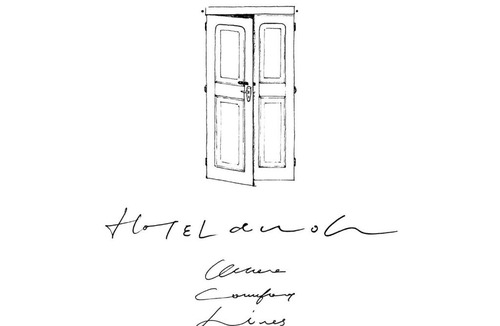 HOTEL
Where
Comfort
Lives